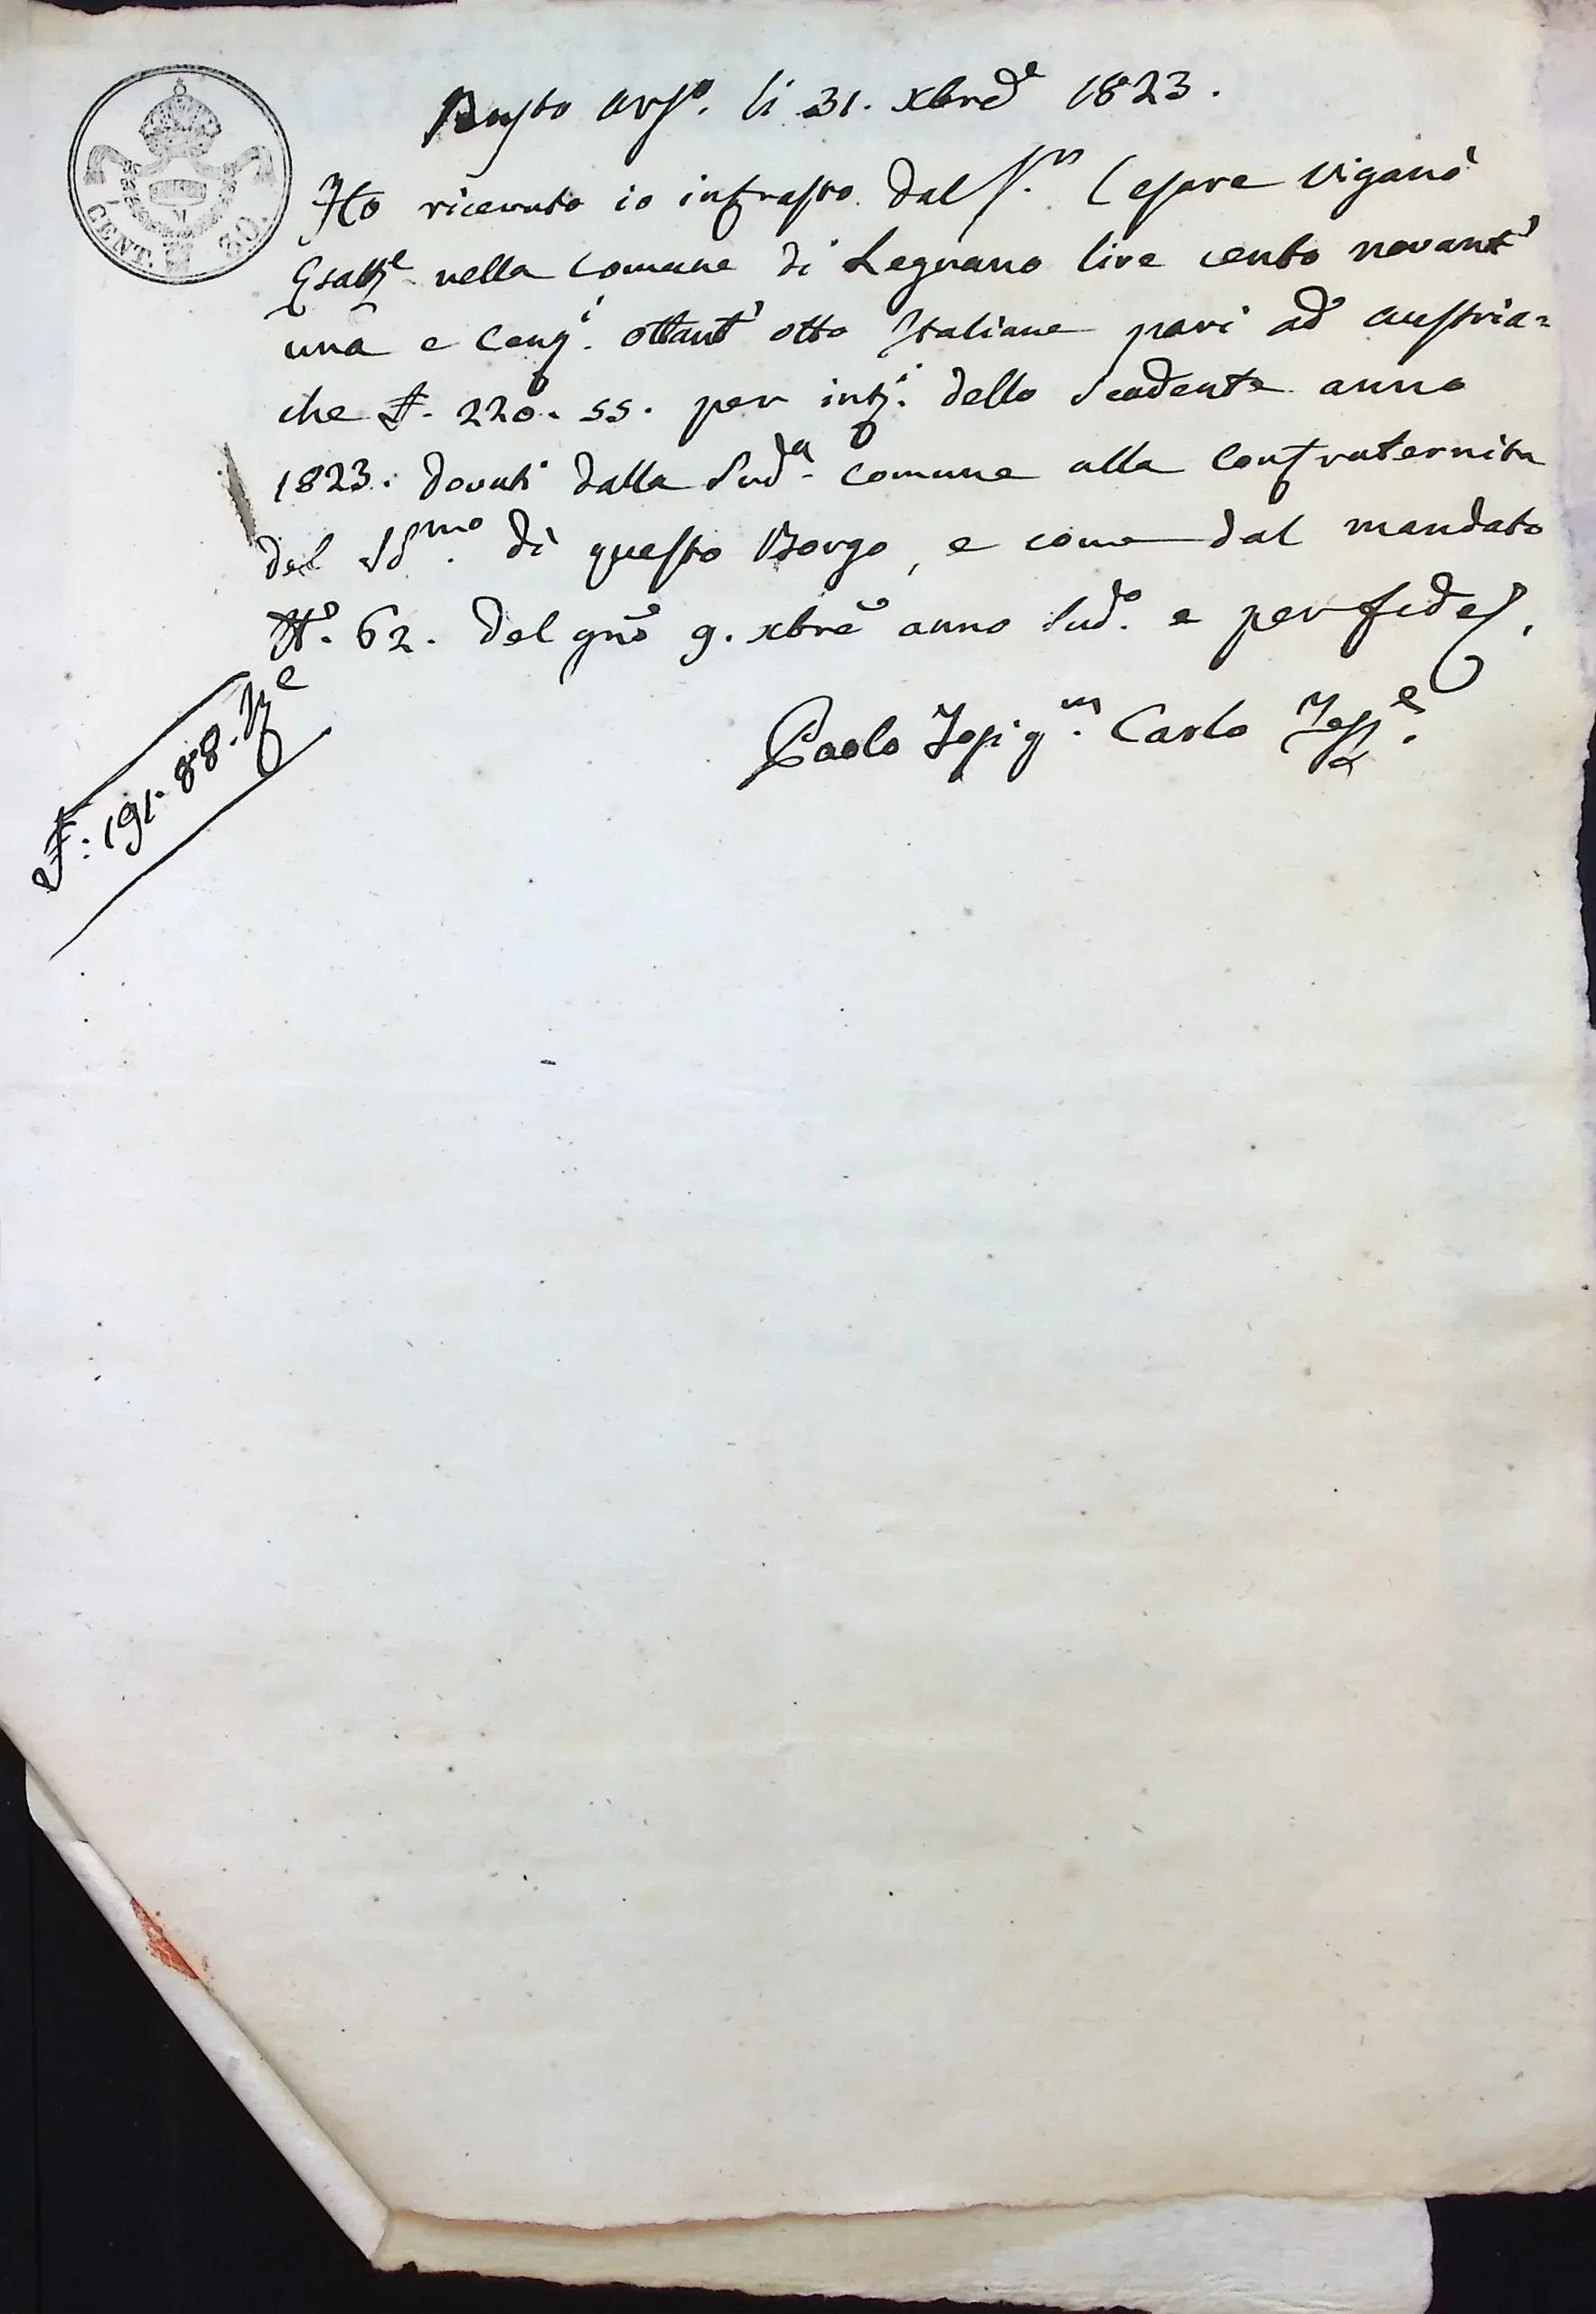 CENT. 30.
Busto Ars.o li 31. xbre 1823.
Ho ricevuto io infrasto. dal S.r Cesare Viganò
Esatt.e nella Comune di Legnano lire cento novant'
una e Cent.i ottant' otto Italiane pari ad austria=
che £. 220. 55. per int.i dello Scadente anno
1823. dovuti dalla Sud.a Comune alla Confraternita
del SS.mo di questo Borgo, e come dal mandato
N.o 62. del gno 9. xbre anno Sud.o e per fede
Paolo Carlo
£: 191. 88.